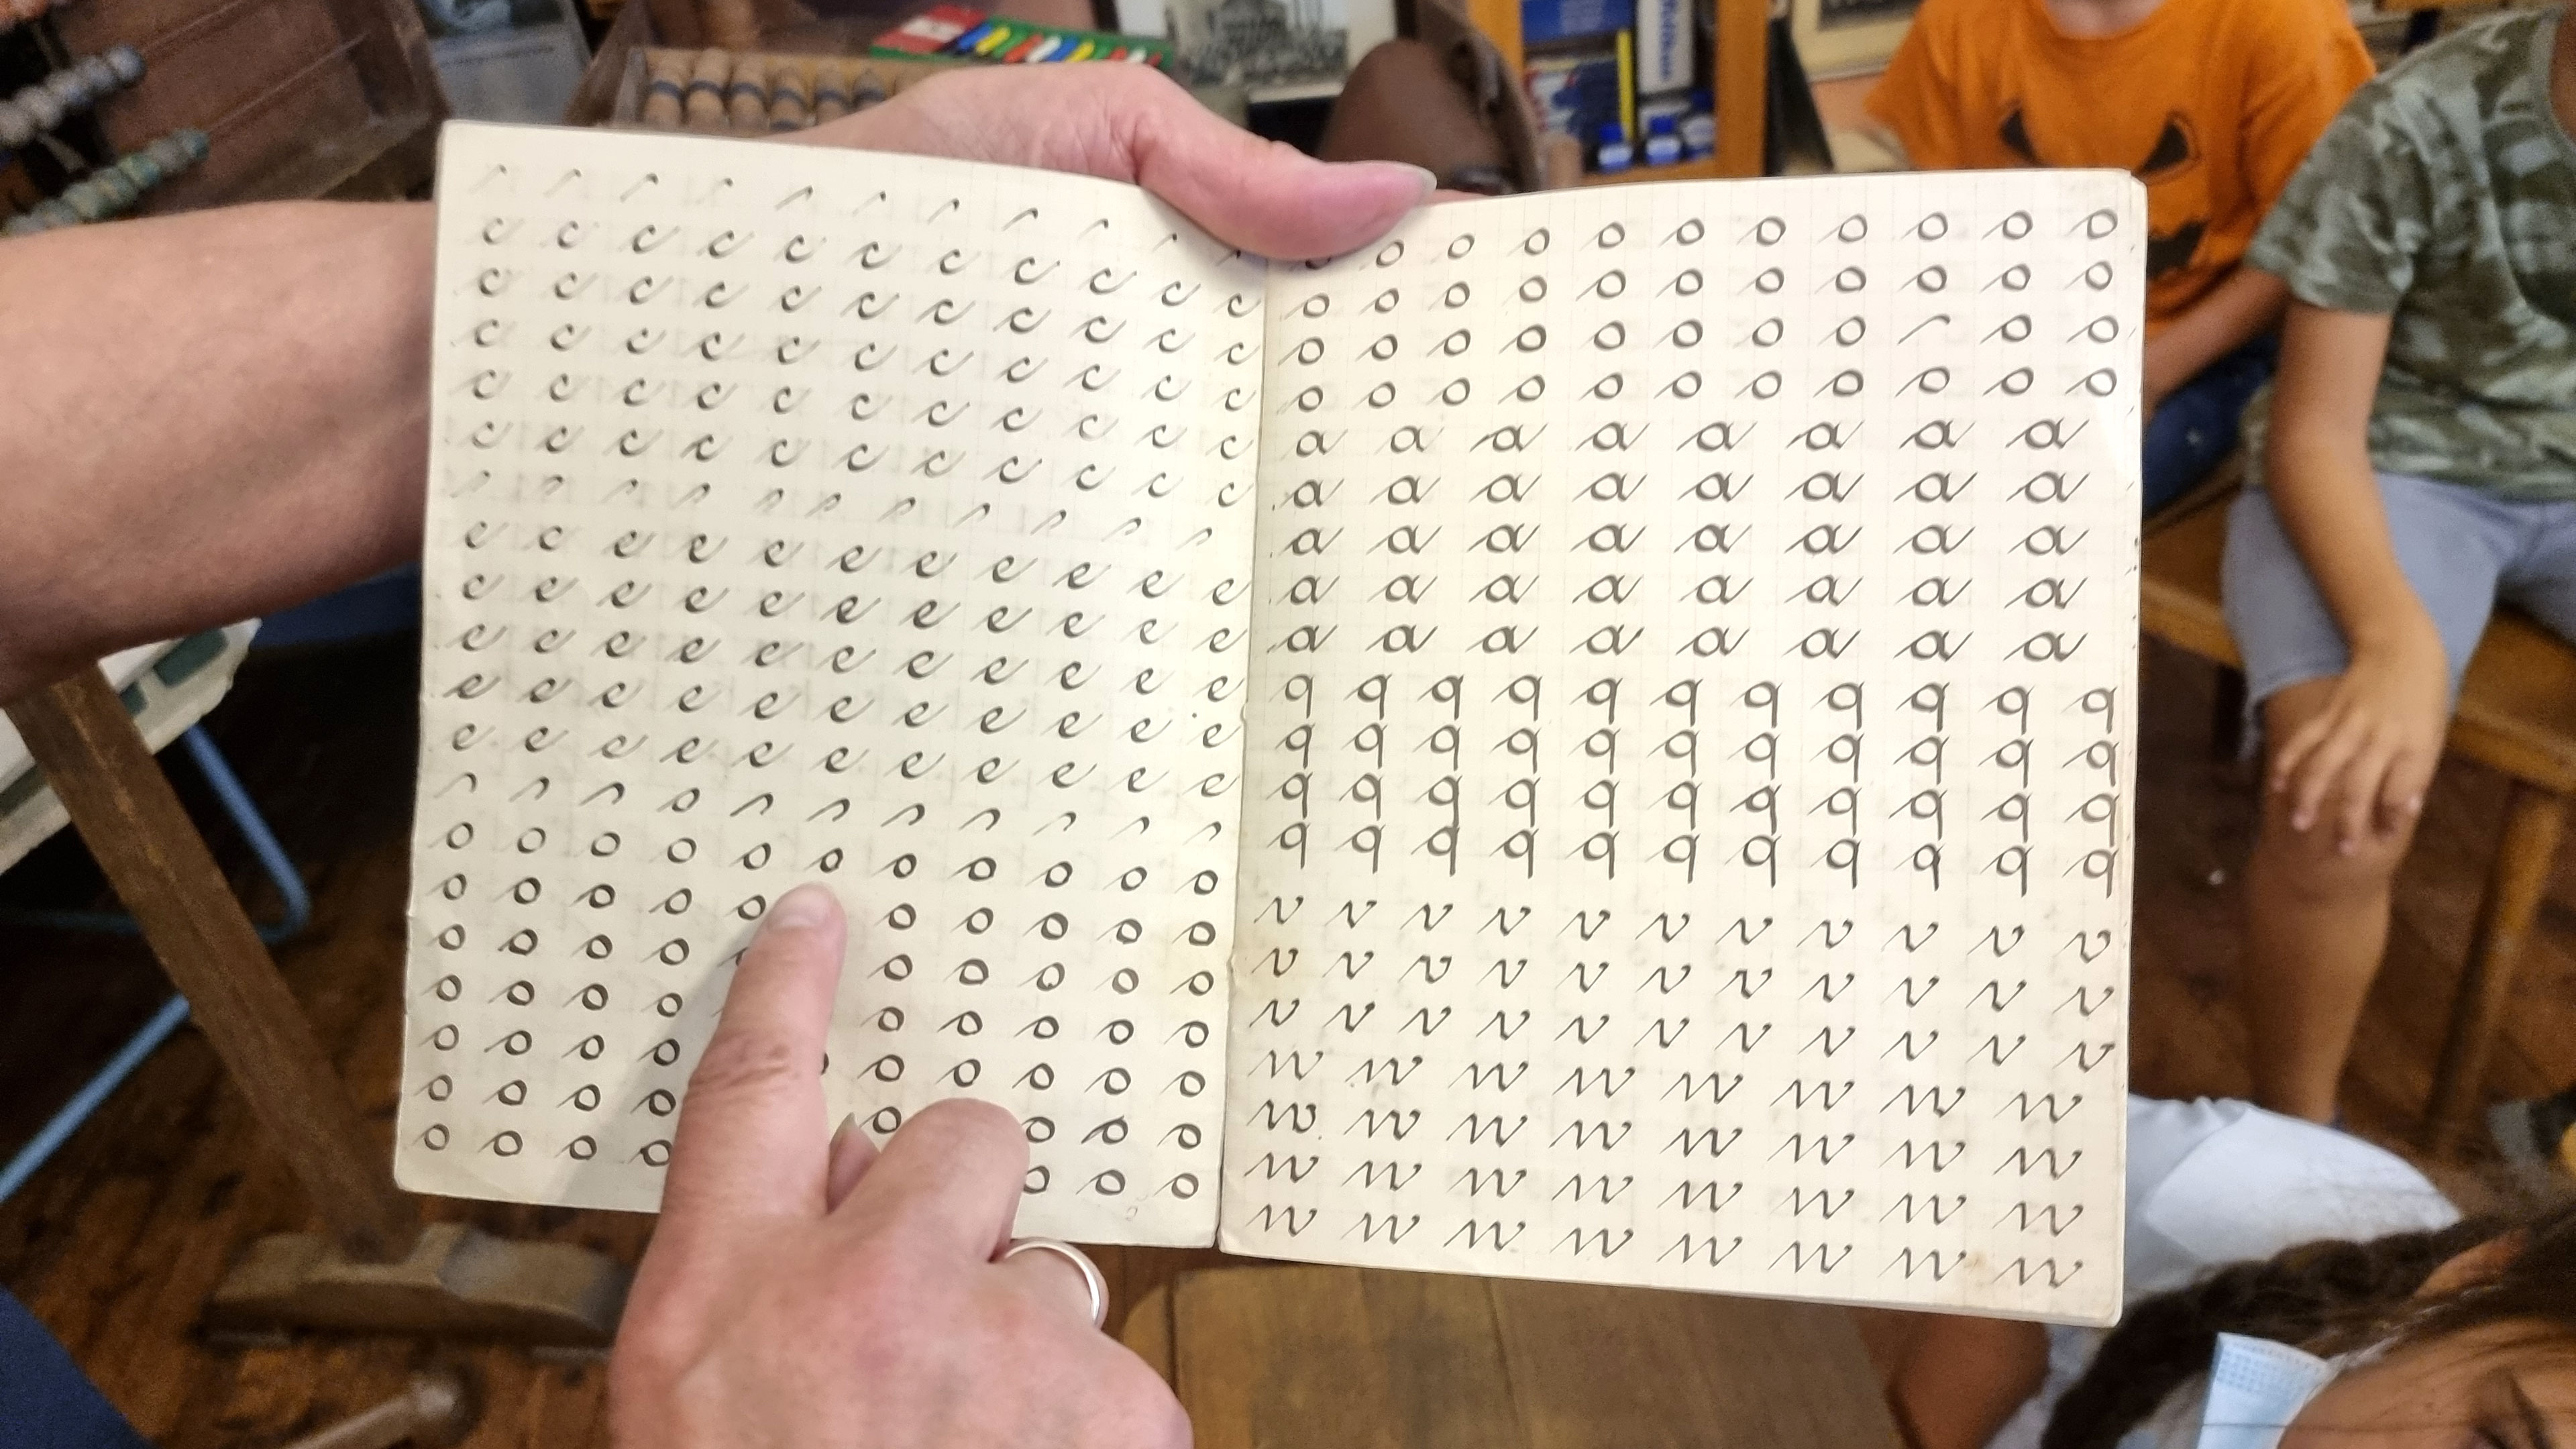 c c c c c c c c c c c
c c c c c c c c c c c
c c c c c c c c c c c
c c c c c c c c c c c
c c c c c c c c c c c
e e e e e e e e e e e
e e e e e e e e e e e
e e e e e e e e e e e
e e e e e e e e e e e
e e e e e e e e e e e
o
o o o o o o o o o o o
o o o o o o o o o o
o o o o o o o o o
o o o o o o o o o
o o o o o o o o o
o o o o o o o o
o o o o o o o
o o o o o o o o o o o
o o o o o o o o o o o
o o o o o o o o o o
o o o o o o o o o o o
a a a a a a a a
a a a a a a a a
a a a a a a a a
a a a a a a a a
a a a a a a a a
q q q q q q q q q q q
q q q q q q q q q q q
q q q q q q q q q q q
q q q q q q q q q q q
v v v v v v v v v v v
v v v v v v v v v v v
v v v v v v v v v v v
w w w w w w w w
w w w w w w w w
w w w w w w w w
w w w w w w w w